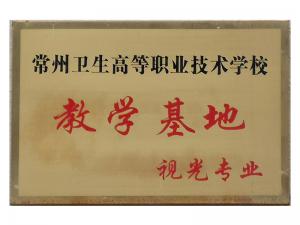 常州卫生高等职业技术学校
教学基地
视光专业